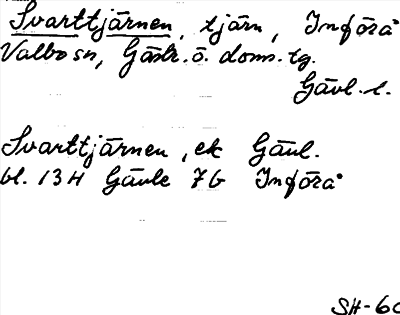 Svarttjärnen, tjärn, Införa
Valbo sn, Gästr. ö. doms. tg.
Gävl. l.
Svarttjärnen, ek Gävl.
bl. 13H Gävle 7b Införa
SH-60